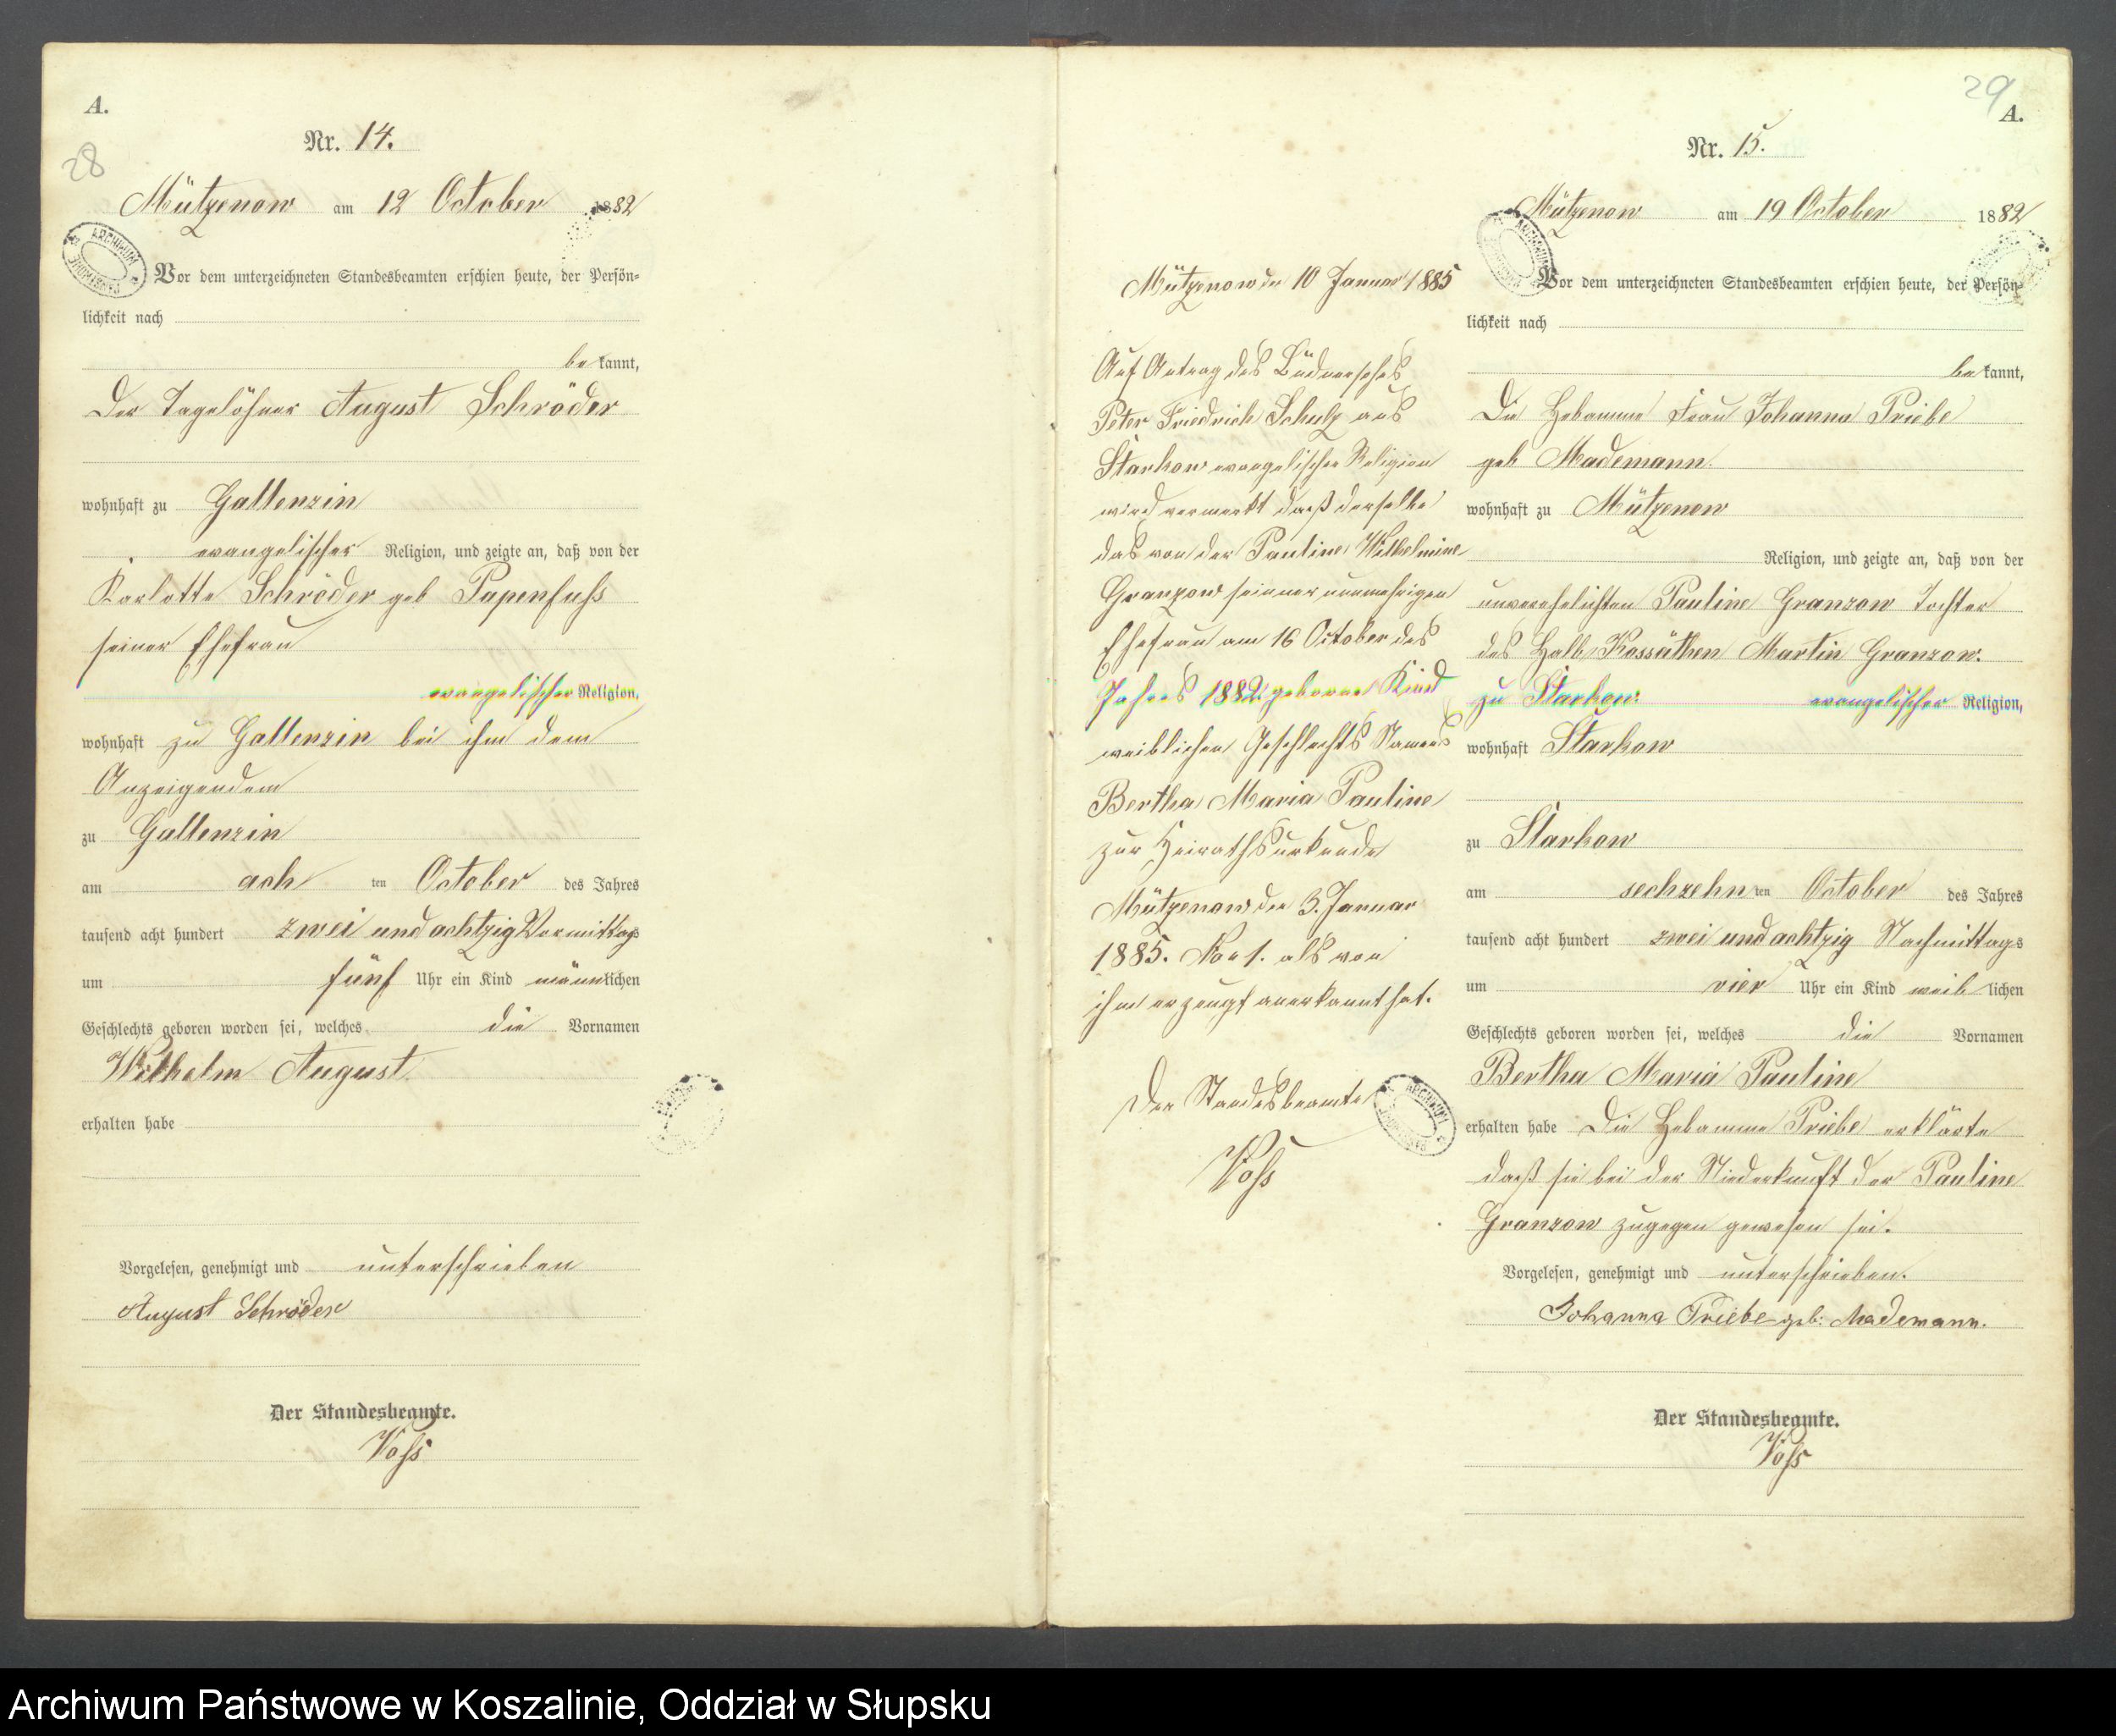 A.
28
Nr. 14.
Mützenow am 12 October 1882
Vor dem unterzeichneten Standesbeamten erschien heute, der Persön-
lichkeit nach
be kannt,
Der Tagelöhner August Schröder
wohnhaft zu Gallenzin
evangelischer Religion, und zeigte an, daß von der
Karlotte Schröder geb Papenfuss
seiner Ehefrau
evangelischer Religion,
wohnhaft zu Gallenzin bei ihm dem
Anzeigendem
zu Gallenzin
am ach ten October des Jahres
tausend acht hundert zwei und achtzig Vormittags
um fünf Uhr ein Kind männlichen
Geschlechts geboren worden sei, welches die Vornamen
Wilhelm August
erhalten habe
Vorgelesen, genehmigt und unterschrieben
August Schröder
Der Standesbeamte.
Voss
Mützenow den 10 Januar 1885
Auf Antrag des
Peter Friedrich Schulz aus
Starkow evangelischer Religion
wird vermerkt daß derselbe
das von der Pauline Wilhelmine
Granzow seiner nunmehrigen
Ehefrau am 16 October des
Jahres 1882 geborene Kind
weiblichen Geschlechts Namens
Bertha Maria Pauline
zur Heirathsurkunde
Mützenow den 3. Januar
1885. No 1. als von
ihm erzeugt anerkannt hat.
Der Standesbeamte
Voss
29
A.
Nr. 15.
Mützenow am 19 October 1882
Vor dem unterzeichneten Standesbeamten erschien heute, der Persön-
lichkeit nach
be kannt,
Die Hebamme Frau Johanna Priebe
geb Mademann.
wohnhaft zu Mützenow
Religion, und zeigte an, daß von der
unverehelichten Pauline Granzow Tochter
des Halb Kossäthen Martin Granzow.
zu Starkow. evangelischer Religion,
wohnhaft Starkow
zu Starkow
am sechzehn ten October des Jahres
tausend acht hundert zwei und achtzig Nachmittags
um vier Uhr ein Kind weib lichen
Geschlechts geboren worden sei, welches die Vornamen
Bertha Maria Pauline
erhalten habe Die Hebamme Priebe erklärte
daß sie bei der Niederkunft der Pauline
Granzow zugegen gewesen sei.
Vorgelesen, genehmigt und unterschrieben.
Johanna Priebe geb: Mademann.
Der Standesbeamte.
Voss
Archiwum Państwowe w Koszalinie, Oddział w Słupsku